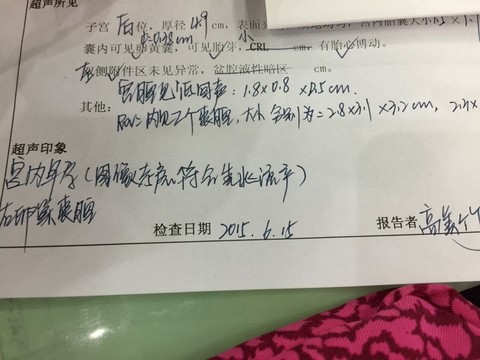 超声所见
子宫 后 位，厚径 4.9 cm，表面
d=0.38cm 小
囊内可见卵黄囊，可见胎芽，CRL cm，有胎心搏动。
侧附件区未见异常，盆腔液性暗区 cm。
宫腔见低回声：1.8×0.8×0.5cm.
其他：
Rov：内见二个囊腔，大小分别为=2.8×3.1×3.2cm，
超声印象
宫内早孕（图像考虑符合先兆流产）
右卵巢囊腔
检查日期 2015.6.15 报告者